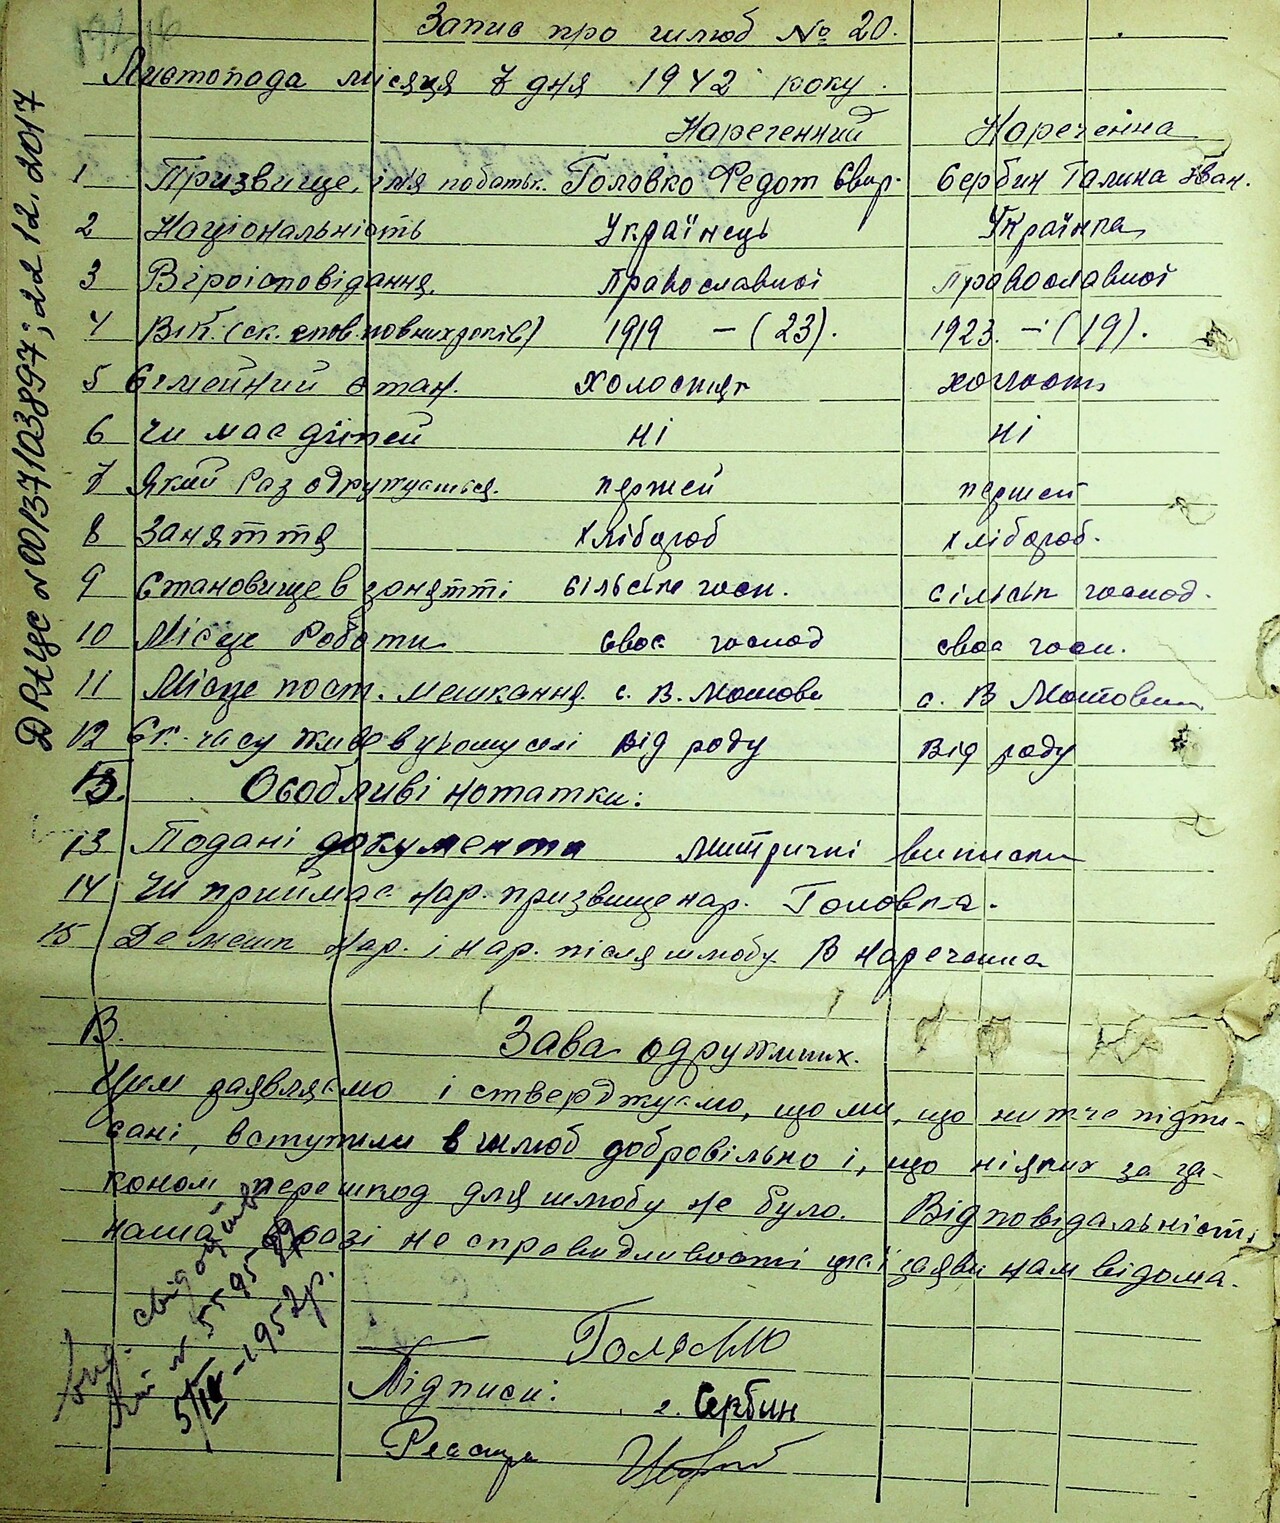 Запис про шлюб № 20.
Листопада місяця 7 дня 1942 року.
Нареченний Наречена
1 Призвище, ім'я побатьк. Головко Федот Євдр. Сербин Галина Іван.
2 Національність Українець Українка
3 Віроісповідання. Православної Православної
4 Вік (ск. спов. повних років) 1919 – (23). 1923. – (19).
5 Сімейний стан. холостяк
6 Чи має дітей ні ні
7 Який раз одружується. першей першей
8 Заняття хлібороб хлібороб.
9 Становище в занятті сільське госп. сільськ господ.
10 Місце Роботи своє господ своє госп.
11 Місце пост. мешкання с. В. с. В
12 Ск. часу живе в цьому селі від роду від роду
Б. Особливі нотатки:
13 Подані документи метричні виписки
14 Чи приймає нар. призвище нар. Головка.
15 Де мешк нар. і нар. після шлюбу В нареченна
В. одружених.
Цим заявляємо і стверджуємо, що ми, що нижче підпи-
сані, вступили в шлюб добровільно і, що ніяких за за-
коном перешкод для шлюбу не було. Відповідальність
наша в разі не справидливости цієї заяви нам відома.
Головко
Підписи: г. Сербин
ДРАЦС № 00137103897; 22.12.2017
5/IV – 1952 р.